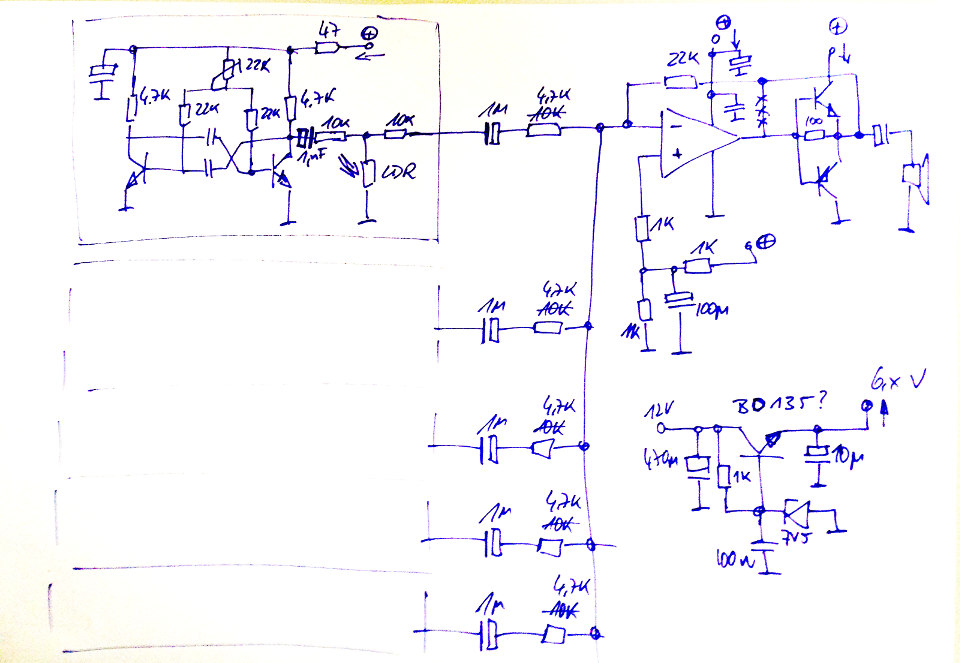 47
⊕
22K
4,7K
22K
22K
4,7K
10K
1µF
LDR
10K
1M
4,7K
10K
22K
⊕
⊕
-
+
100
1K
1K
⊕
1K
100µ
1M
4,7K
10K
1M
4,7K
10K
1M
4,7K
10K
1M
4,7K
10K
12V
BD 135?
6,x V
470µ
1K
10µ
7V5
100n